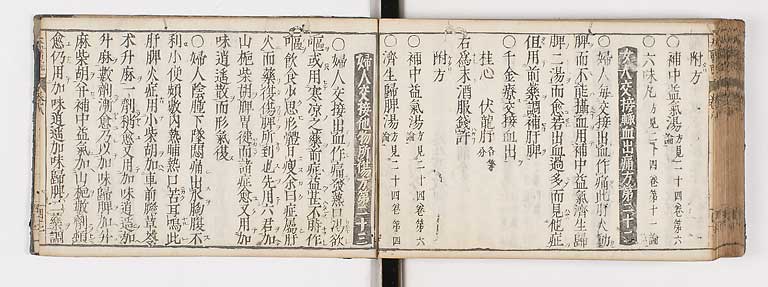 附方
○補中益氣湯方見二十四卷第六論
○六味丸方見二十四卷十一論
女人交接輙血出痛方第二十二
○婦人每交接出血作痛此肝火動
脾而不能攝血用補中益氣濟生歸
脾二湯而愈若出血過多而見他症
但用前藥調補肝脾
○千金療交接血出
桂心 伏龍肝各等分
右爲末酒服錢許
附方
○補中益氣湯方見二十四卷第六論
○濟生歸脾湯方見二十四卷第四論
婦人交接他物所傷方第二十三
○婦人交接出血作痛發熱口渴欲
嘔或用寒凉之藥前症益甚不時作
嘔飲食少思形體日瘦余曰症屬肝
火而藥復傷脾所致也先用六君加
山梔柴胡脾胃健而諸症愈又用加
味逍遙散而形氣復
○婦人陰腫下墜悶痛出水胸腹不
利小便頻數內熱晡熱口苦耳鳴此
肝脾火症用小柴胡加車前膽草苓
朮升麻一劑稍愈又用加味逍遙加
升麻數劑漸愈乃以加味歸脾加升
麻柴胡并補中益氣加山梔數劑頓
愈仍用加味逍遙加味歸脾二藥調